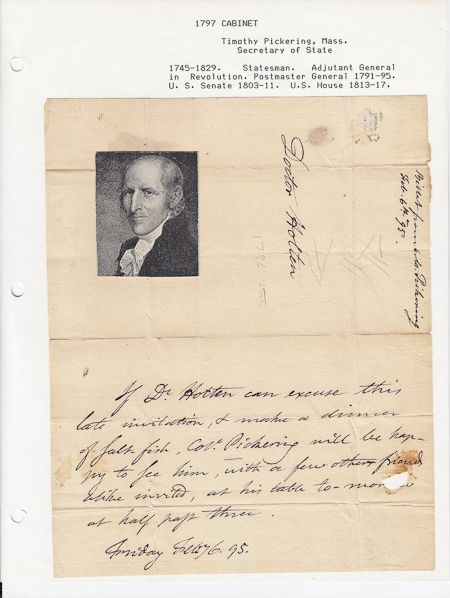 1797 CABINET
Timothy Pickering, Mass.
Secretary of State
1745-1829. Statesman. Adjutant General
in Revolution. Postmaster General 1791-95.
U. S. Senate 1803-11. U.S. House 1813-17.
Doctor Holten
Billet from Pickering
Feb. 6th 95.
If Dr. Holten can excuse this
late invitation, & make a dinner
of salt fish, Colo. Pickering will be hap-
py to see him, with a few other friends
alike invited, at his table to-
at half past three.
Friday Feb. 6. 95.